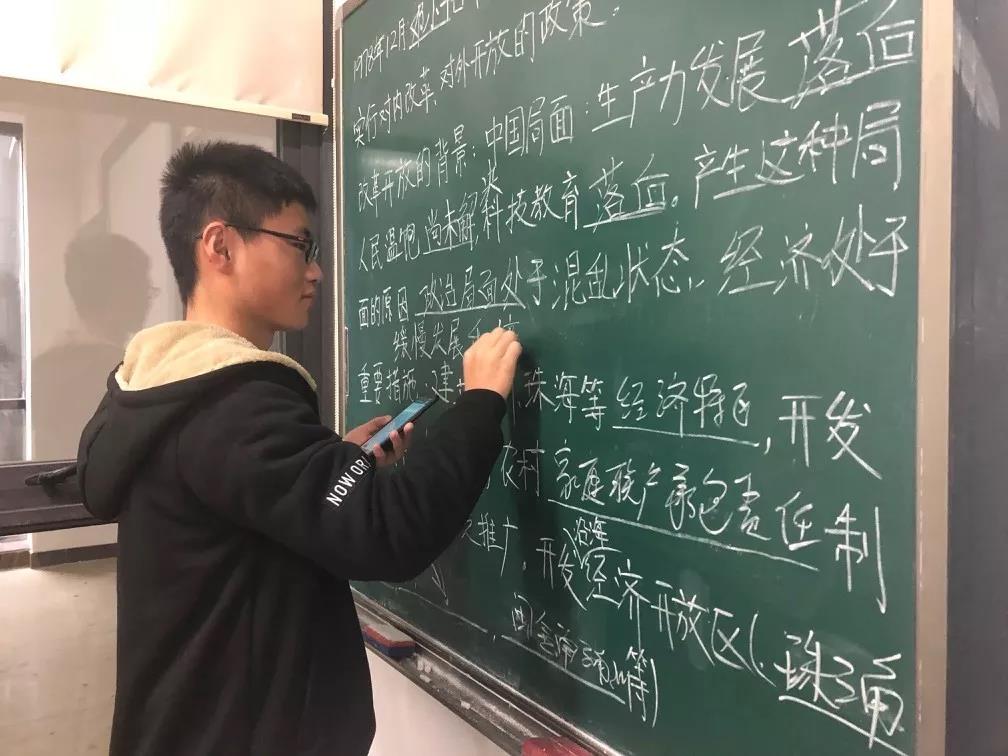 1978年12月
实行对内改革、对外开放的政策。
改革开放的背景：中国局面：生产力发展落后
人民温饱尚未解决，科技教育落后。产生这种局
面的原因 政治局面处于混乱状态，经济处于
缓慢发展
重要措施 建 珠海等经济特区，开发
农村家庭联产承包责任制
推广。开发沿海经济开放区(珠三角
等)
NOWOR